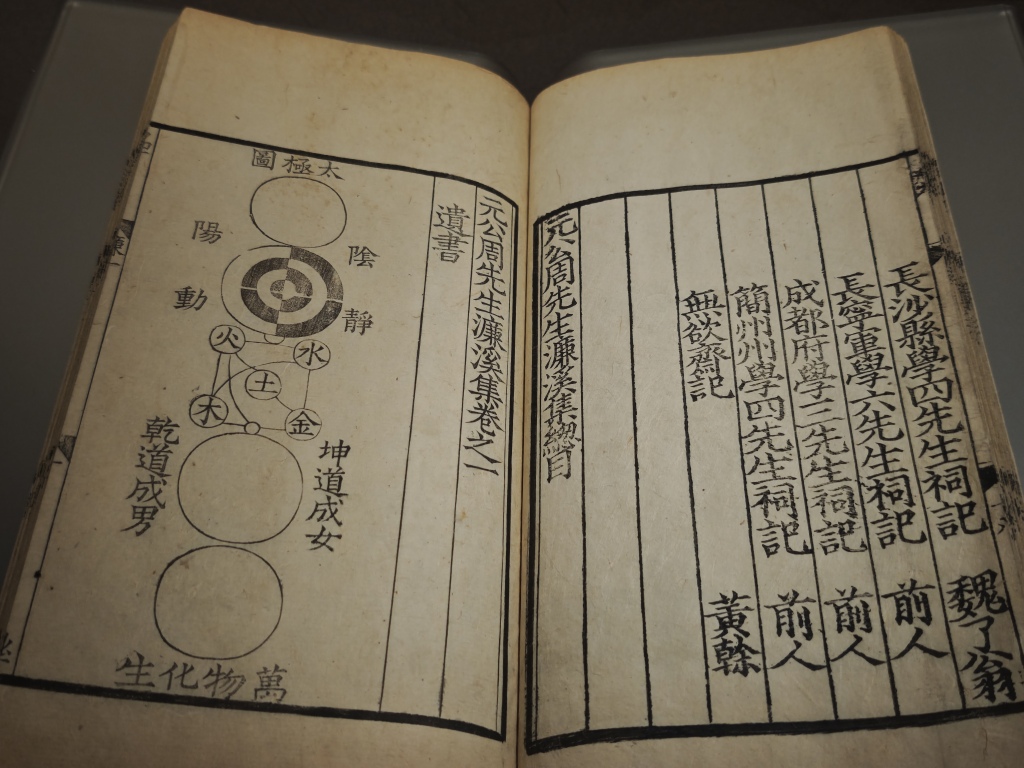 長沙縣學四先生祠記 魏了翁
長寧軍學六先生祠記 前人
成都府學三先生祠記 前人
簡州州學四先生祠記 前人
無欲齋記 黃榦
元公周先生濂溪集緫目
元公周先生濂溪集卷之一
遺書
太極圖
陰
靜
陽
動
火
水
土
木
金
坤道成女
乾道成男
萬物化生